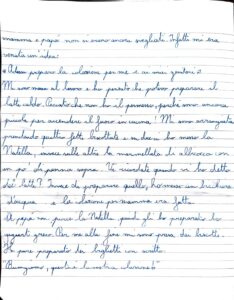 mamma e papà non si erano ancora svegliati. Infatti mi era
venuta un'idea:
"Adesso preparo la colazione per me e ai miei genitori."
Mi sono messo al lavoro e ho pensato che potevo preparare il
latte caldo. Peccato che non ho il permesso, perché sono ancora
piccolo per accendere il fuoco in cucina! Mi sono arrangiato
prendendo quattro fette biscottate e su due ci ho messo la
Nutella, invece sulle altre la marmellata di albicocca con
un po' di panna sopra. Vi ricordate quando vi ho detto
del latte? Invece di preparare quello, ho messo un bicchiere
d'acqua e la colazione per mamma era fatta.
A papà non piace la Nutella quindi gli ho preparato lo
yogurt greco. Per me alla fine mi sono preso dei biscotti.
Ho pure preparato dei biglietti con scritto:
"Buongiorno, questa è la vostra colazione!"